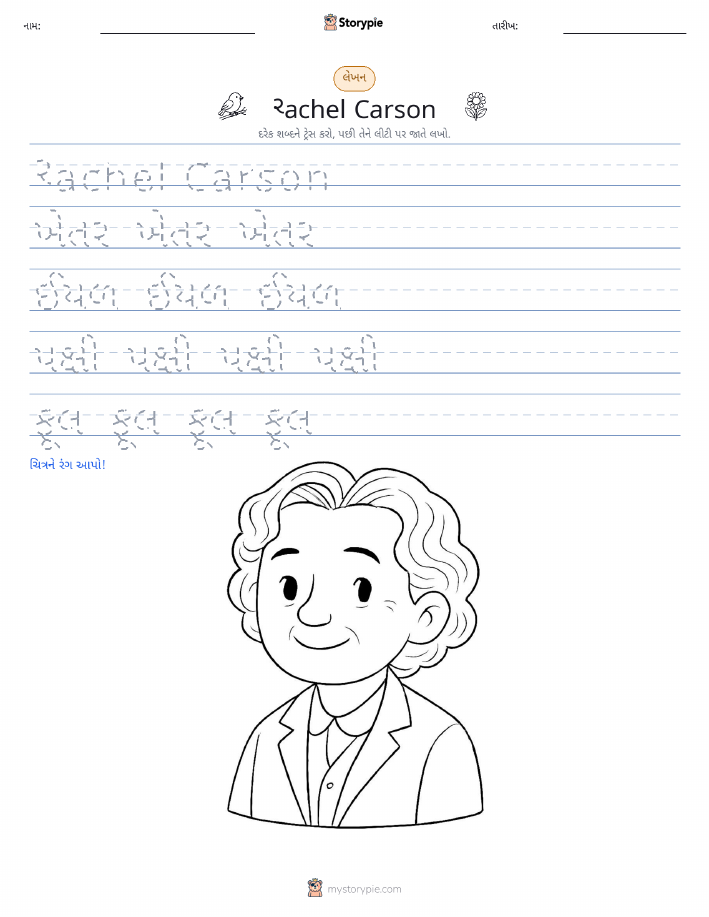 નામ:
Storypie
તારીખ:
લેખન
રachel Carson
દરેક શબ્દને ટ્રેસ કરો, પછી તેને લીટી પર જાતે લખો.
રachel Carson
ખેતર ખેતર ખેતર
ઈયળ ઈયળ ઈયળ
પક્ષી પક્ષી પક્ષી પક્ષી
ફૂલ ફૂલ ફૂલ ફૂલ
ચિત્રને રંગ આપો!
mystorypie.com